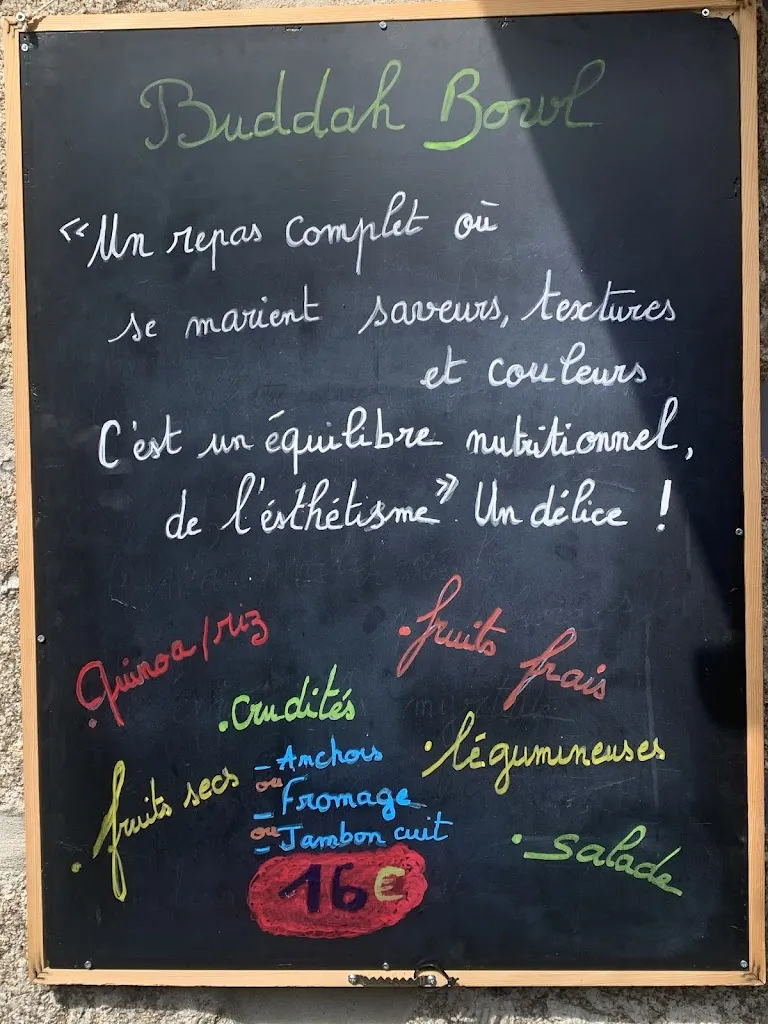 Buddah Bowl
« Un repas complet où
se marient saveurs, textures
et couleurs
C'est un équilibre nutritionnel,
de l'ésthétisme ». Un délice !
• Quinoa/riz
• fruits frais
• crudités
• fruits secs
- Anchois
ou
- Fromage
ou
- Jambon cuit
• légumineuses
• salade
16€